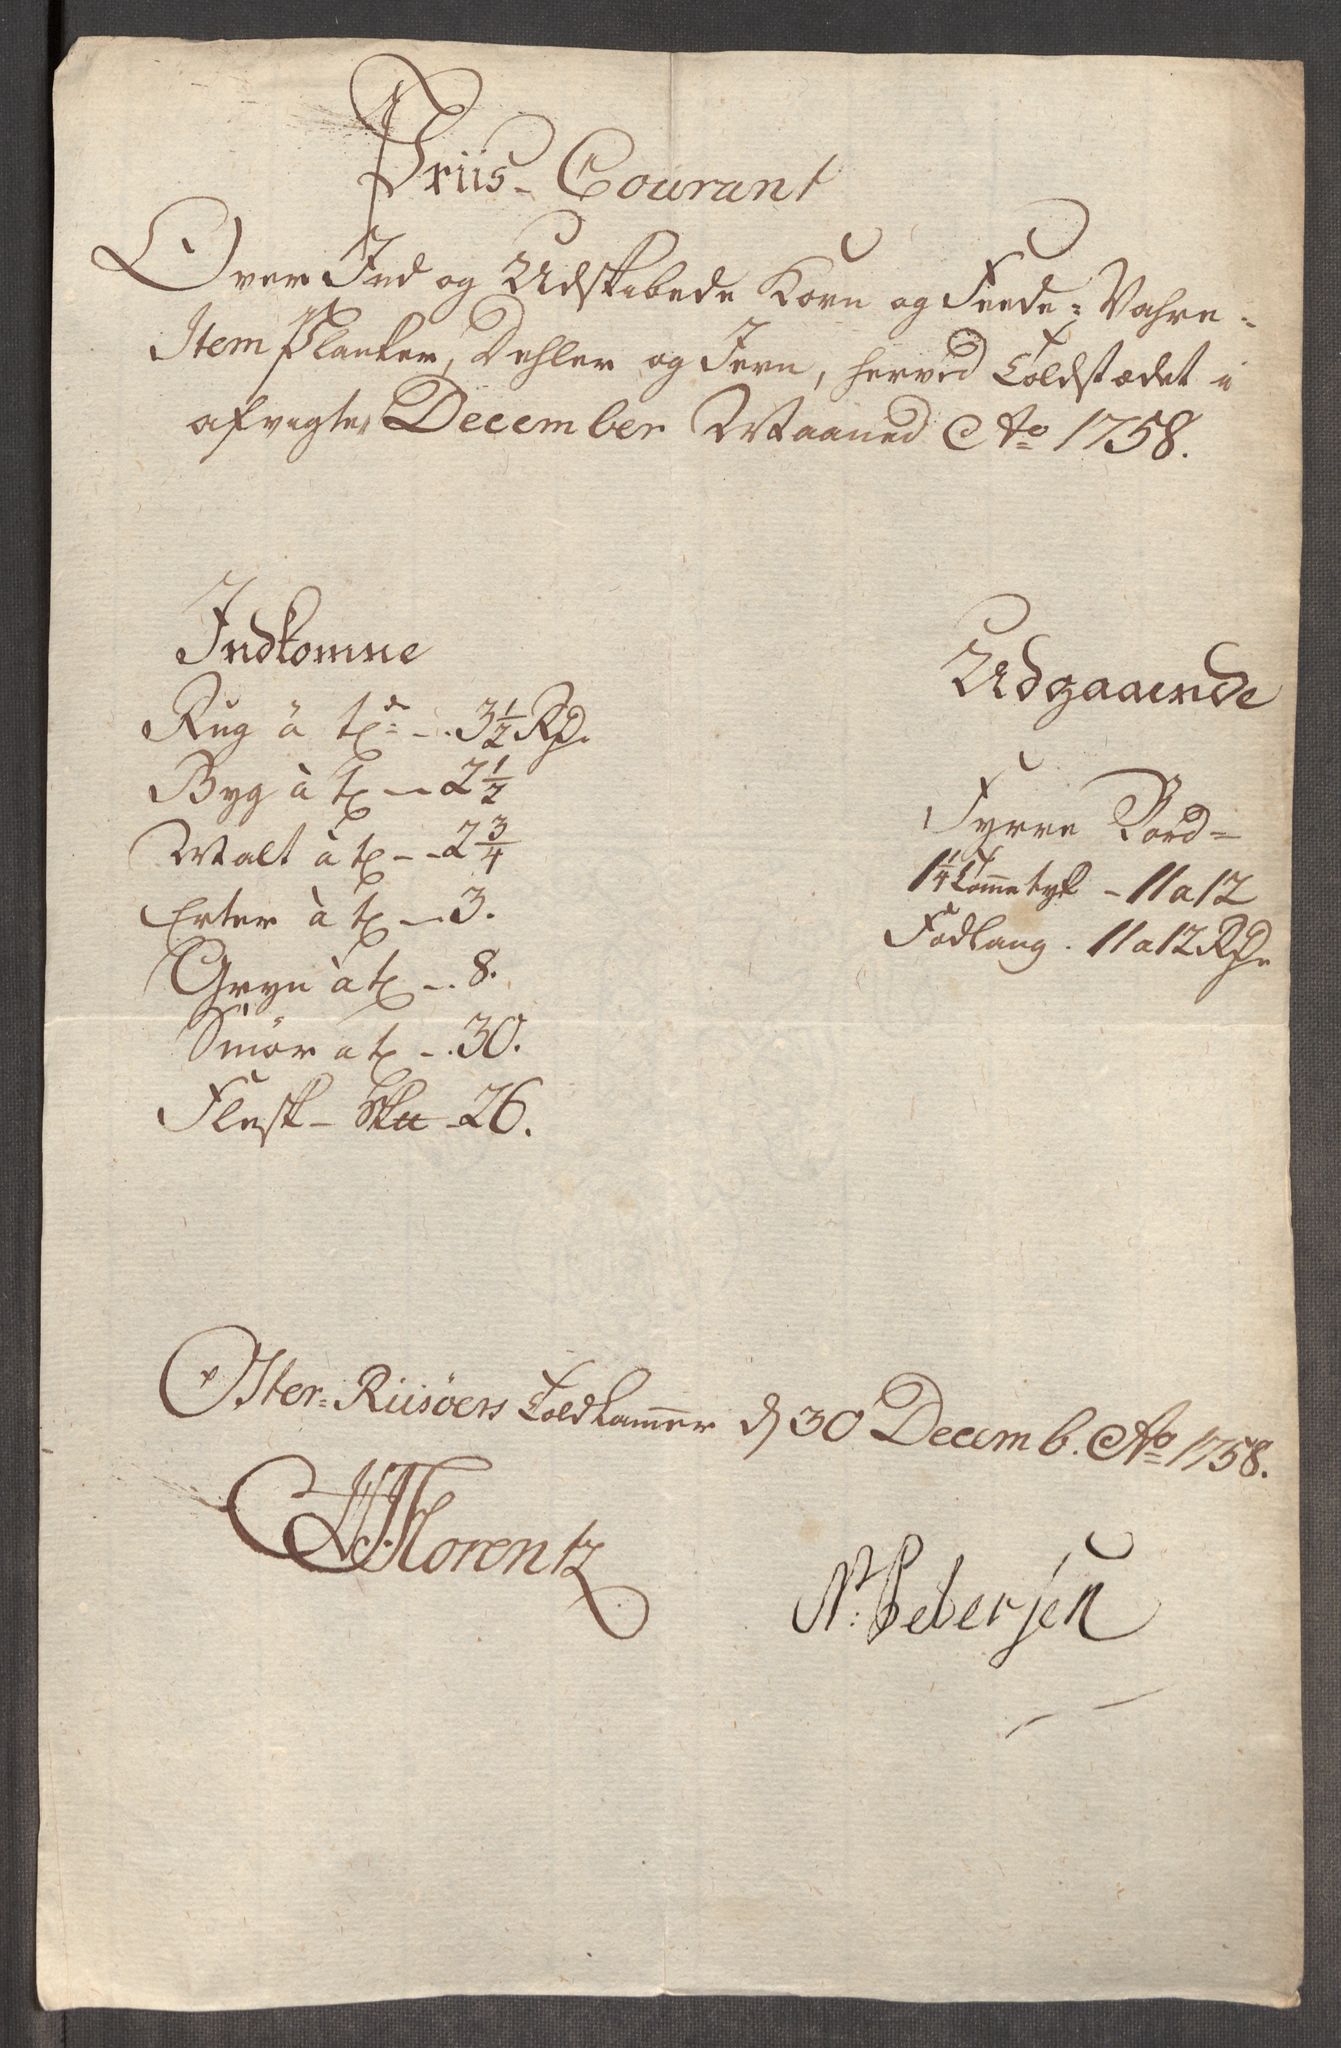 Priis-Courant
Over Ind og Udskibede Korn og Feede-Vahre-
Item Planker, Dehler og Jern, herved Toldstædet i
afvigte December Maaned Ao 1758.
Indkomne
Rug à tr - 3 1/2 Rd.
Byg à t - 2 1/2
Malt à t - 2 3/4
Erter à t - 3.
Gryn à t - 8.
Smör a t - 30.
Flesk - 26.
Udgaaende
Fyrre Bord-
1 1/4 Tomme tyk - 11 a 12
Fod lang. 11 a 12 Rd.
Oster-Riisöers Toldkammer d 30 Decemb. Ao 1758.
Florentz
N: Petersen